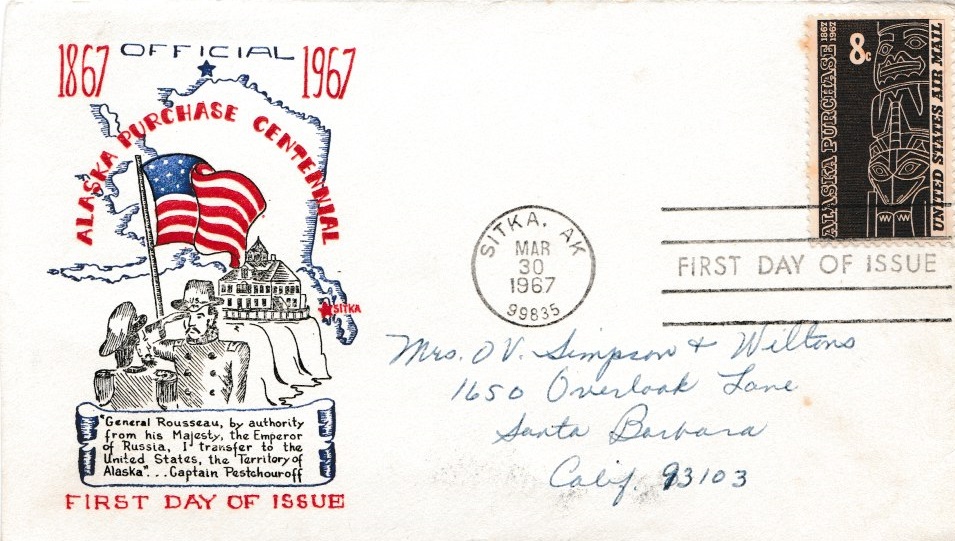 1867 OFFICIAL 1967
ALASKA PURCHASE CENTENNIAL
SITKA
"General Rousseau, by authority
from his Majesty, the Emperor
of Russia, I transfer to the
United States, the Territory of
Alaska"...Captain Pestchouroff
FIRST DAY OF ISSUE
ALASKA PURCHASE 1867
1967
8c
UNITED STATES AIR MAIL
SITKA, AK
MAR
30
1967
99835
FIRST DAY OF ISSUE
Mrs. OV. Simpson + Wiltons
1650 Overlook Lane
Santa Barbara
Calif. 93103